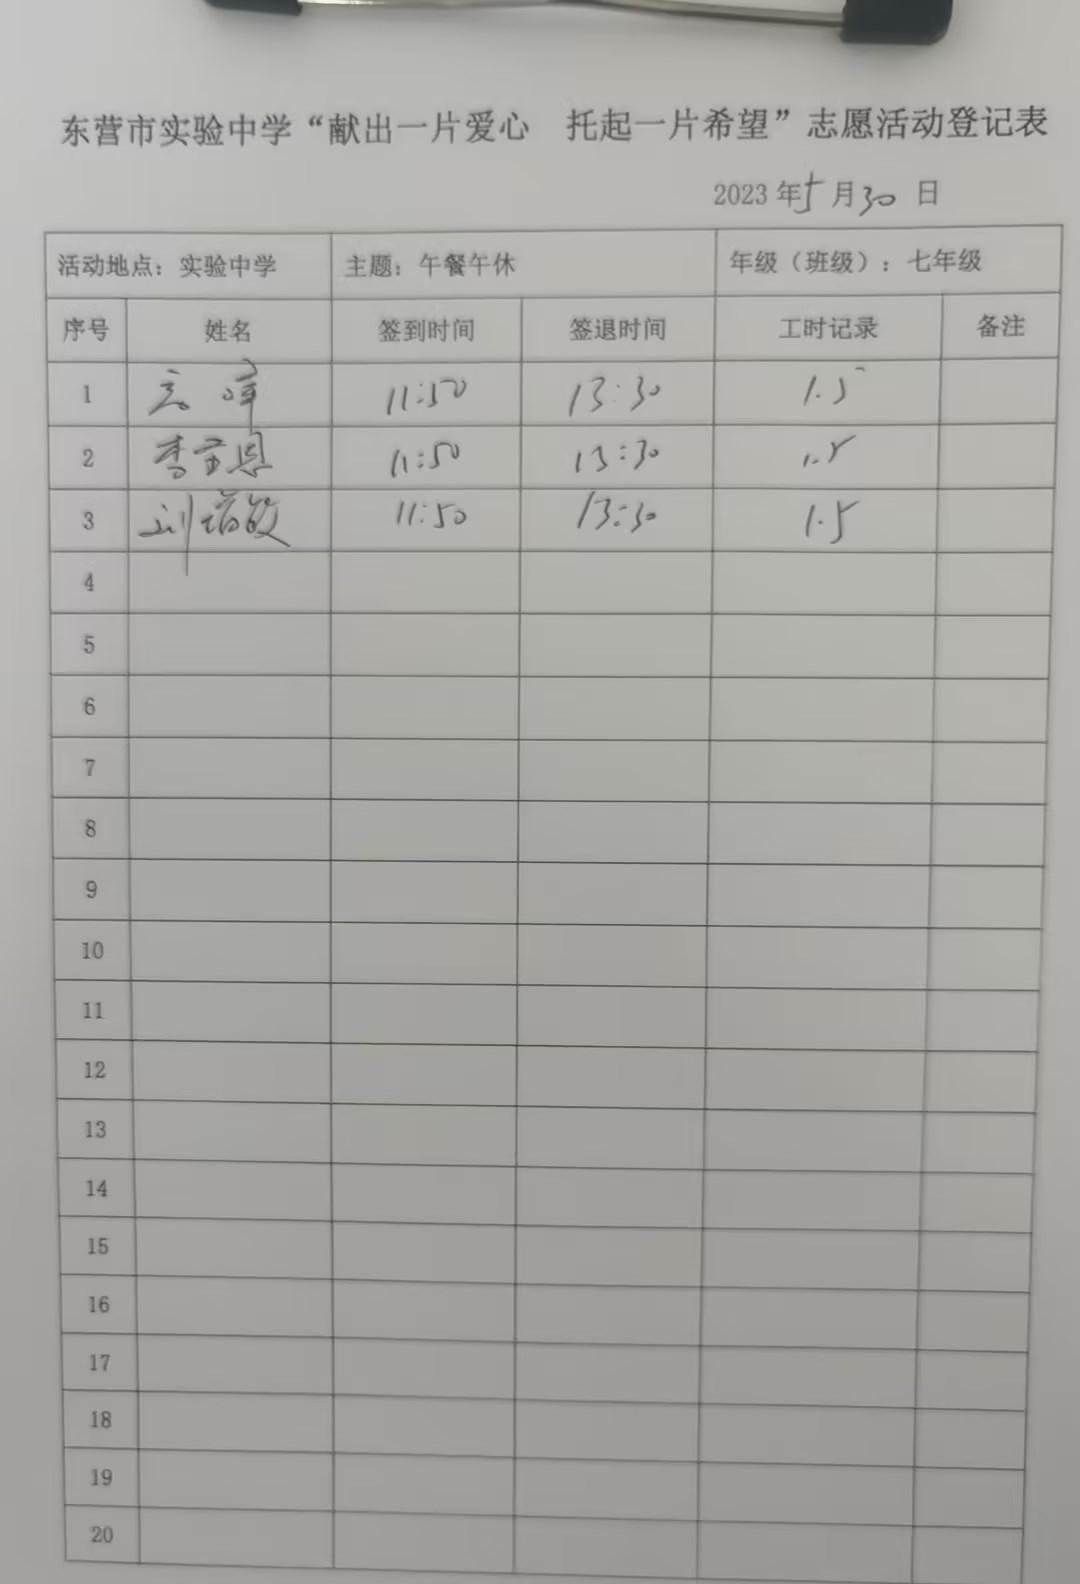 东营市实验中学“献出一片爱心 托起一片希望”志愿活动登记表
2023 年 5 月 30 日
活动地点：实验中学 主题：午餐午休 年级（班级）：七年级
序号 姓名 签到时间 签退时间 工时记录 备注
1 11:50 13:30 1.5
2 李 恩 11:50 13:30 1.5
3 刘 敏 11:50 13:30 1.5
4
5
6
7
8
9
10
11
12
13
14
15
16
17
18
19
20